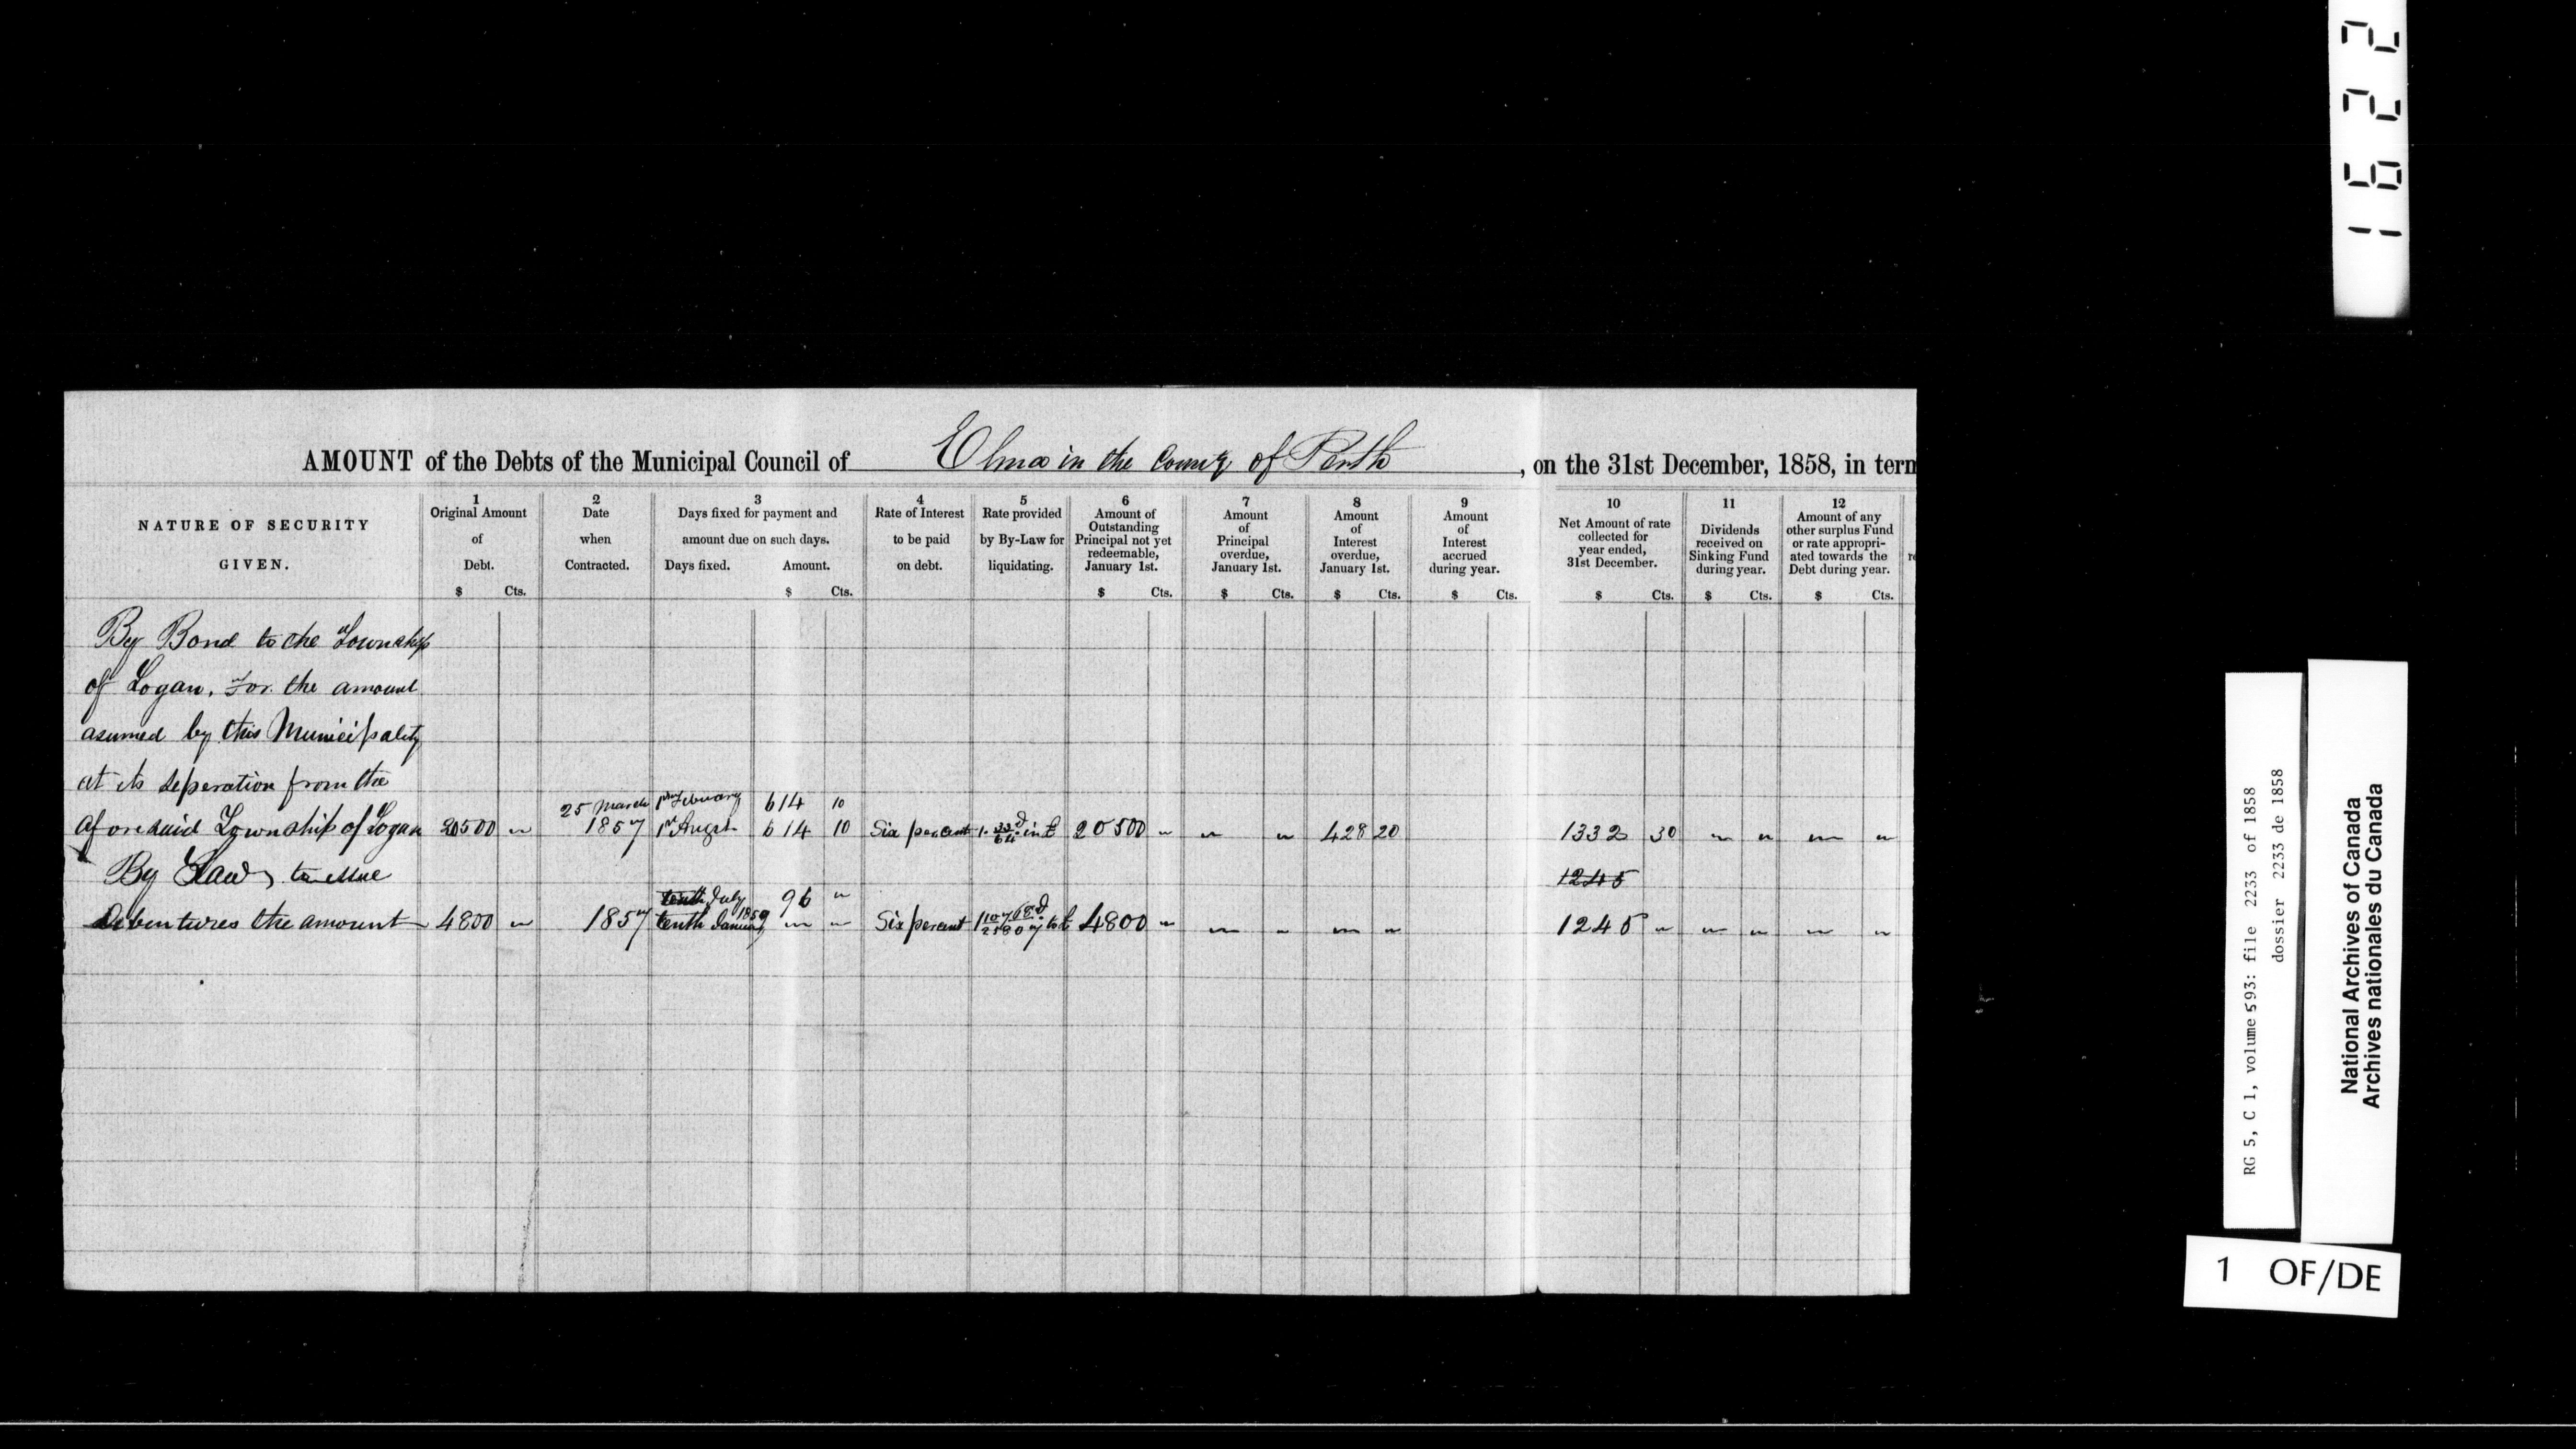 1622
AMOUNT of the Debts of the Municipal Council of Elma in the County of Perth, on the 31st December, 1858, in term
NATURE OF SECURITY GIVEN.
1 Original Amount of Debt. $ Cts.
2 Date when Contracted.
3 Days fixed for payment and amount due on such days. Days fixed. Amount. $ Cts.
4 Rate of Interest to be paid on debt.
5 Rate provided by By-Law for liquidating.
6 Amount of Outstanding Principal not yet redeemable, January 1st. $ Cts.
7 Amount of Principal overdue, January 1st. $ Cts.
8 Amount of Interest overdue, January 1st. $ Cts.
9 Amount of Interest accrued during year. $ Cts.
10 Net Amount of rate collected for year ended, 31st December. $ Cts.
11 Dividends received on Sinking Fund during year. $ Cts.
12 Amount of any other surplus Fund or rate appropriated towards the Debt during year. $ Cts.
By Bond to the Township
of Logan. For the amount
asumed by this Municipality
at its seperation from the
25 March February 614 10
aforesaid Township of Logan 20500 " 1857 1st Augst 614 10 Six percent 1. 33/64 d in £ 20500 " " " 428 20 1332 30 " " " "
By Law to issue 1245
tenth July 96 "
Debentures the amount 4800 " 1857 tenth January 1859 " " Six percent 4800 " " " " " 1245 " " " " "
RG 5, C 1, volume 593: file 2233 of 1858
dossier 2233 de 1858
National Archives of Canada
Archives nationales du Canada
1 OF/DE